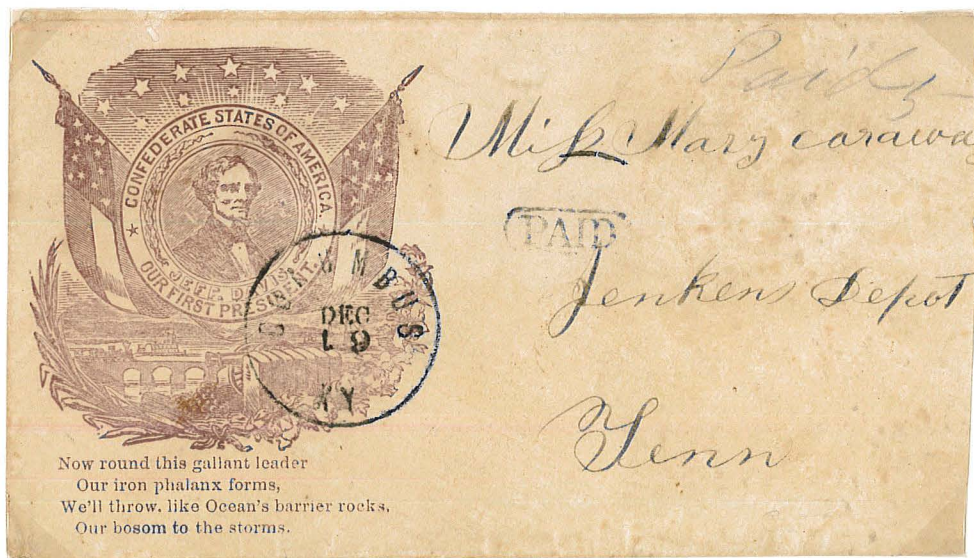 CONFEDERATE STATES OF AMERICA.
JEFF. DAVIS
OUR FIRST PRESIDENT.
COLUMBUS
DEC
19
KY
Now round this gallant leader
Our iron phalanx forms,
We'll throw, like Ocean's barrier rocks,
Our bosom to the storms.
Paid 5
Miss Mary carawa
PAID
Jenkens Depot
Tenn